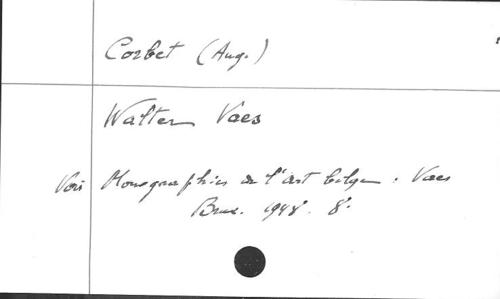 Corbet (Aug.)
Walter Vaes
Voir Monographies de l'art belge. Vaes
Brux. 1948. 8°.